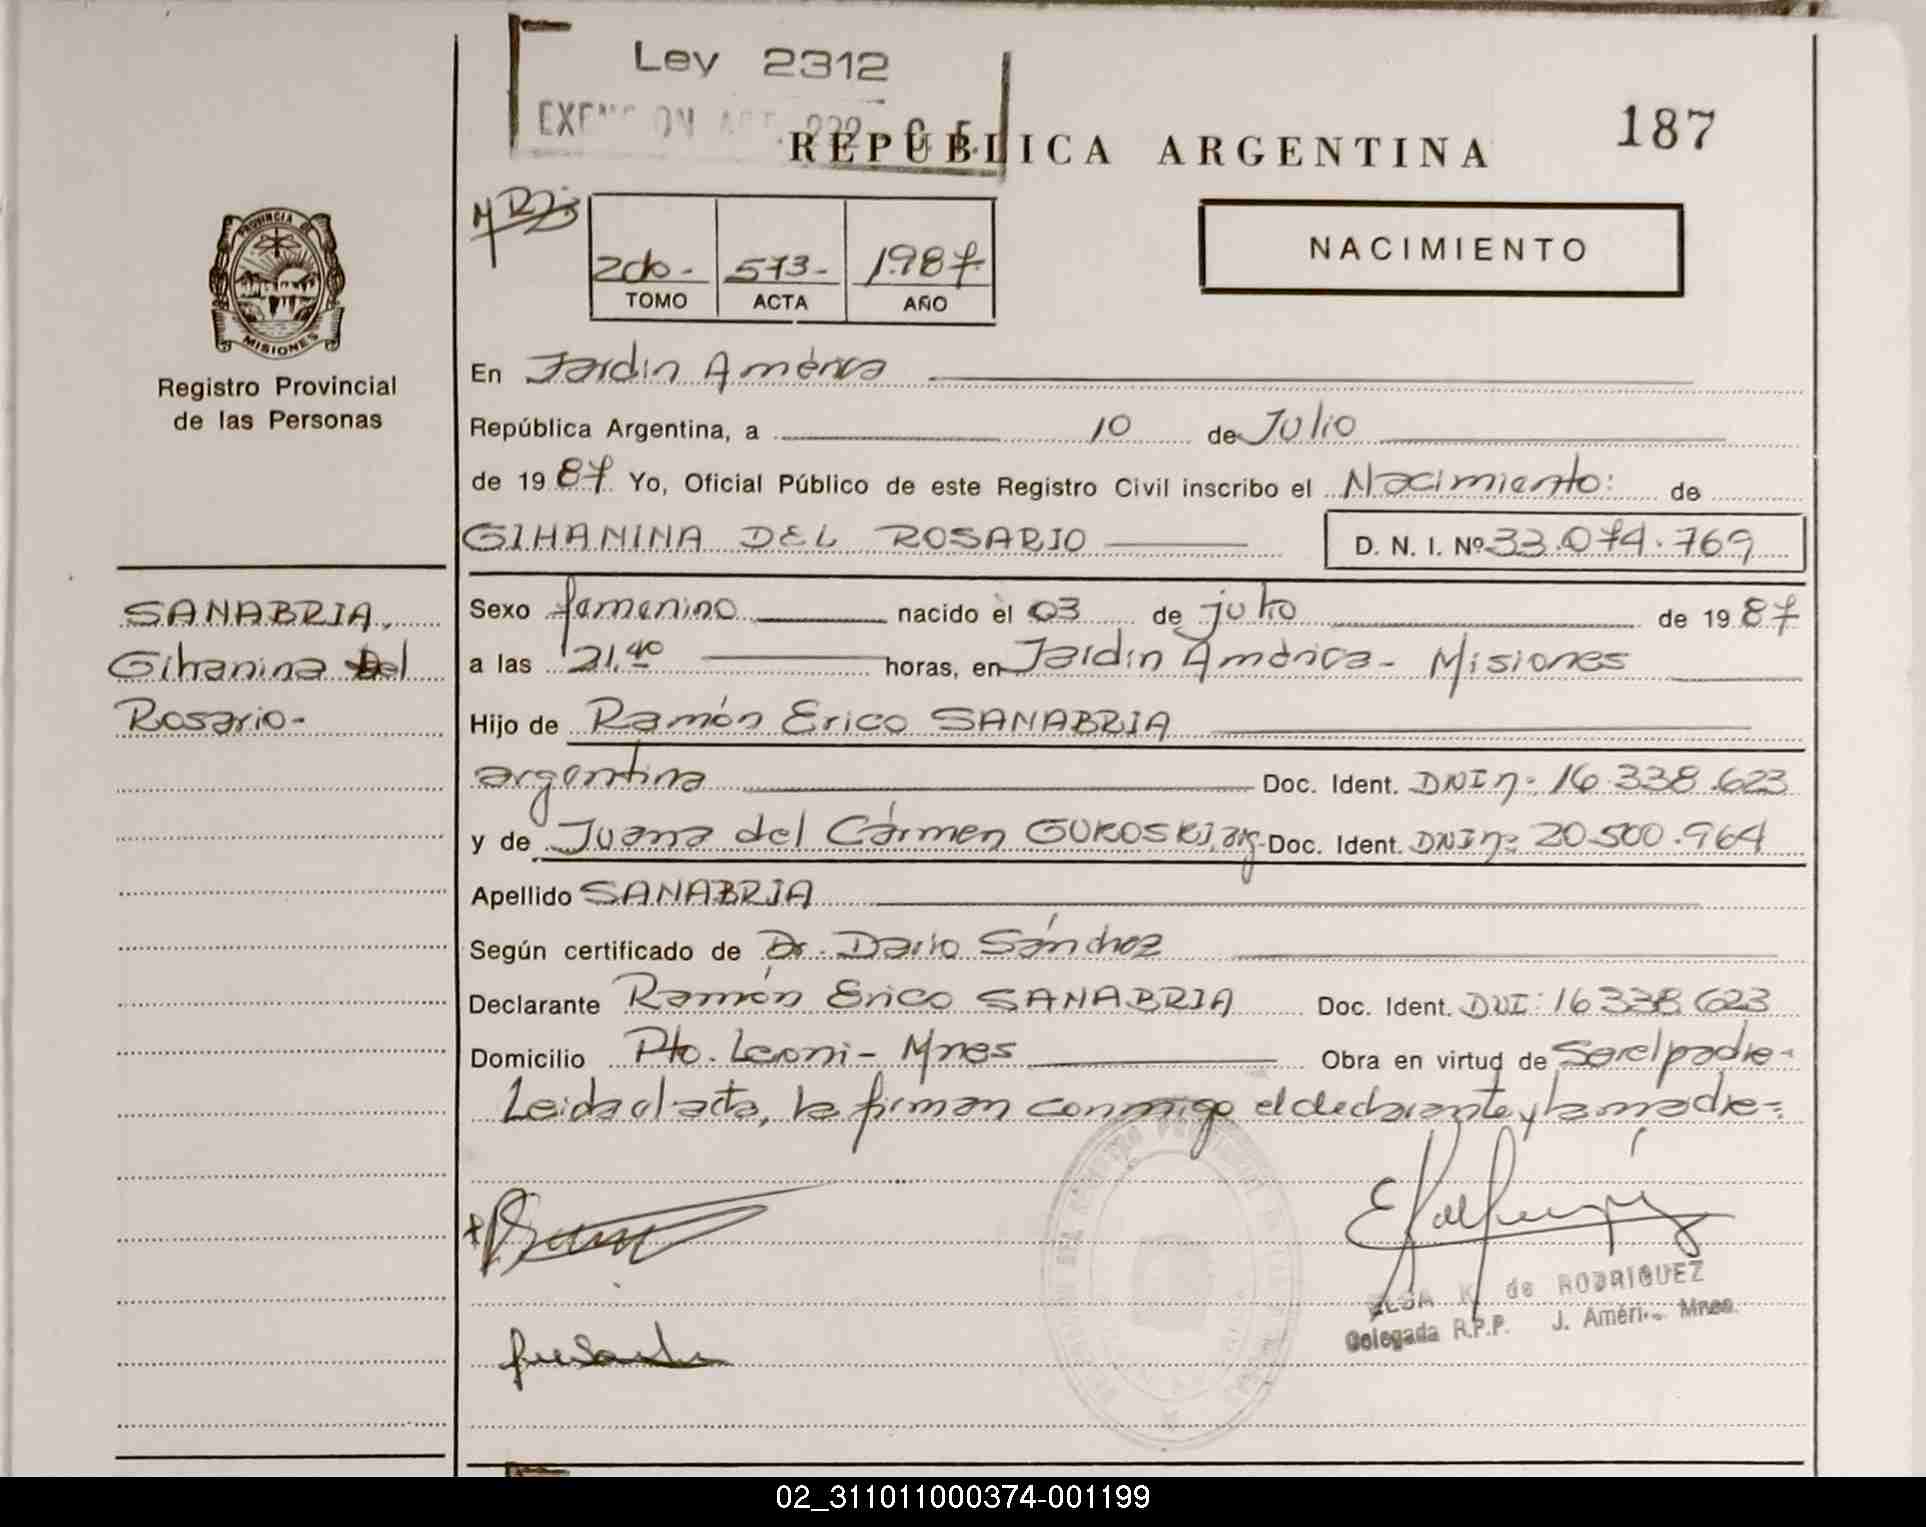 Ley 2312
REPUBLICA ARGENTINA
187
2do- 573- 1987
TOMO ACTA AÑO
NACIMIENTO
PROVINCIA DE
MISIONES
Registro Provincial
de las Personas
En Jardín América
República Argentina, a 10 de Julio
de 1987 Yo, Oficial Público de este Registro Civil inscribo el Nacimiento: de
GIHANINA DEL ROSARIO D. N. I. Nº 33.074.769
SANABRIA,
Gihanina Del
Rosario-
Sexo femenino nacido el 03 de julio de 1987
a las 21,40 horas, en Jardín América - Misiones
Hijo de Ramón Erico SANABRIA
argentina Doc. Ident. DNI nº 16.338.623
y de Juana del Cármen GUROSKI, arg- Doc. Ident. DNI nº 20.500.964
Apellido SANABRIA
Según certificado de Dr. Dario Sánchez
Declarante Ramón Erico SANABRIA Doc. Ident. DNI: 16 338.623
Domicilio Pto. Leoni - Mnes Obra en virtud de Ser el padre-
Leida el acta, la firman conmigo el declarante y la madre-
ELSA K. de RODRIGUEZ
Delegada R.P.P. J. Améri Mnes.
02_311011000374-001199